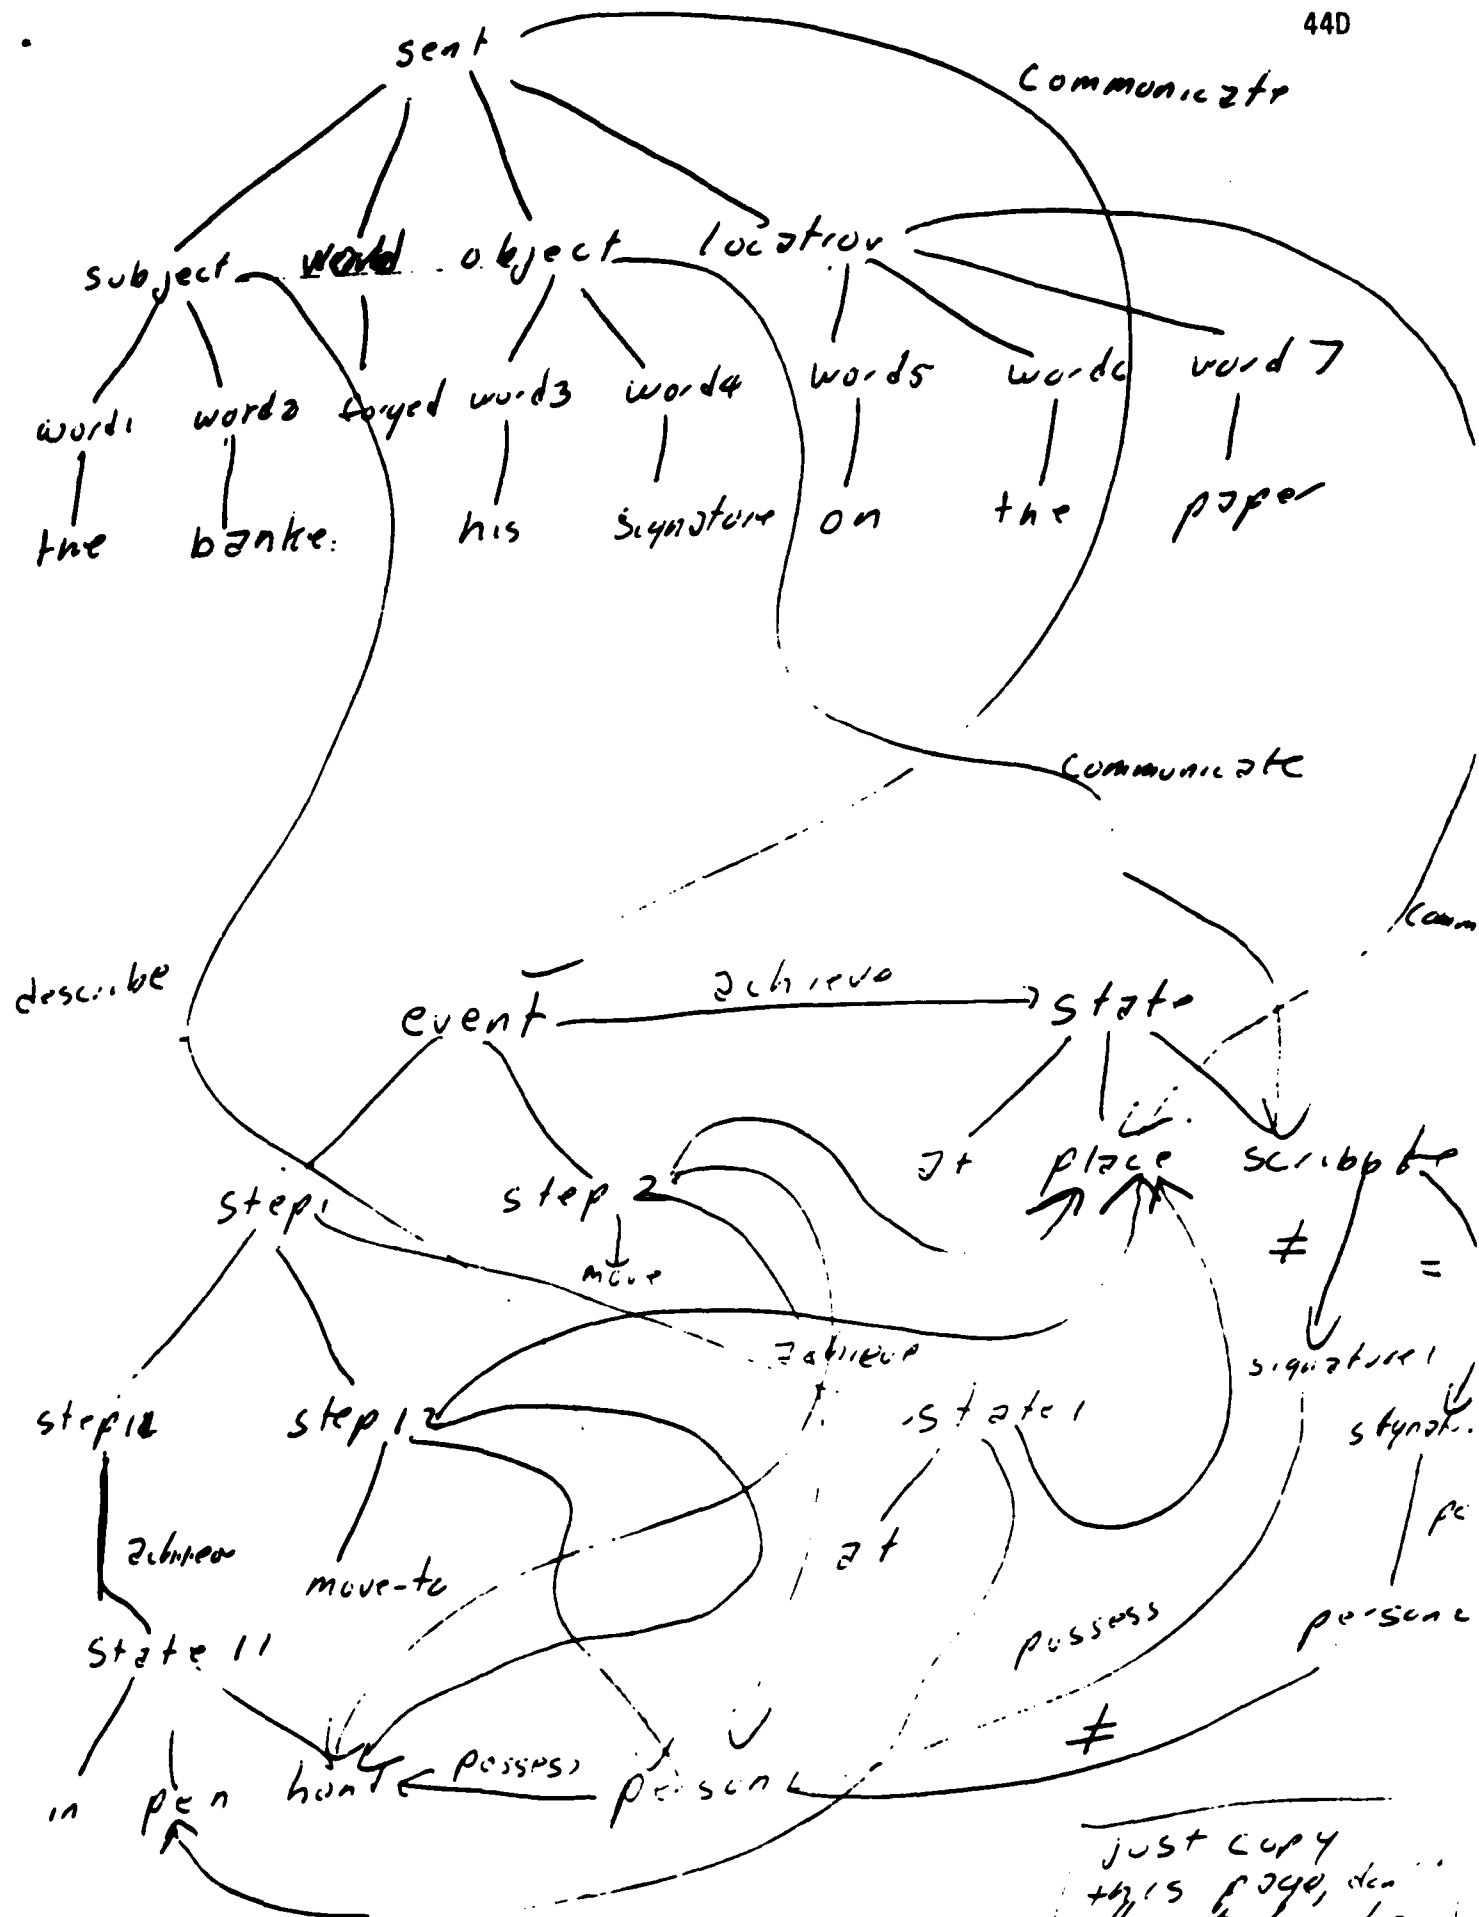 44D
sent
Communicate
subject object location
word1 word2 forged word3 word4 word5 word6 word7
the banke his signature on the paper
communicate
comm
describe
event achieve state
at place
step1 step 2
move
≠ =
achieve
signature1
step 12 state1
achieve
move-to
at
possess
state 11
≠
in pen hand possess person
just copy
this page,